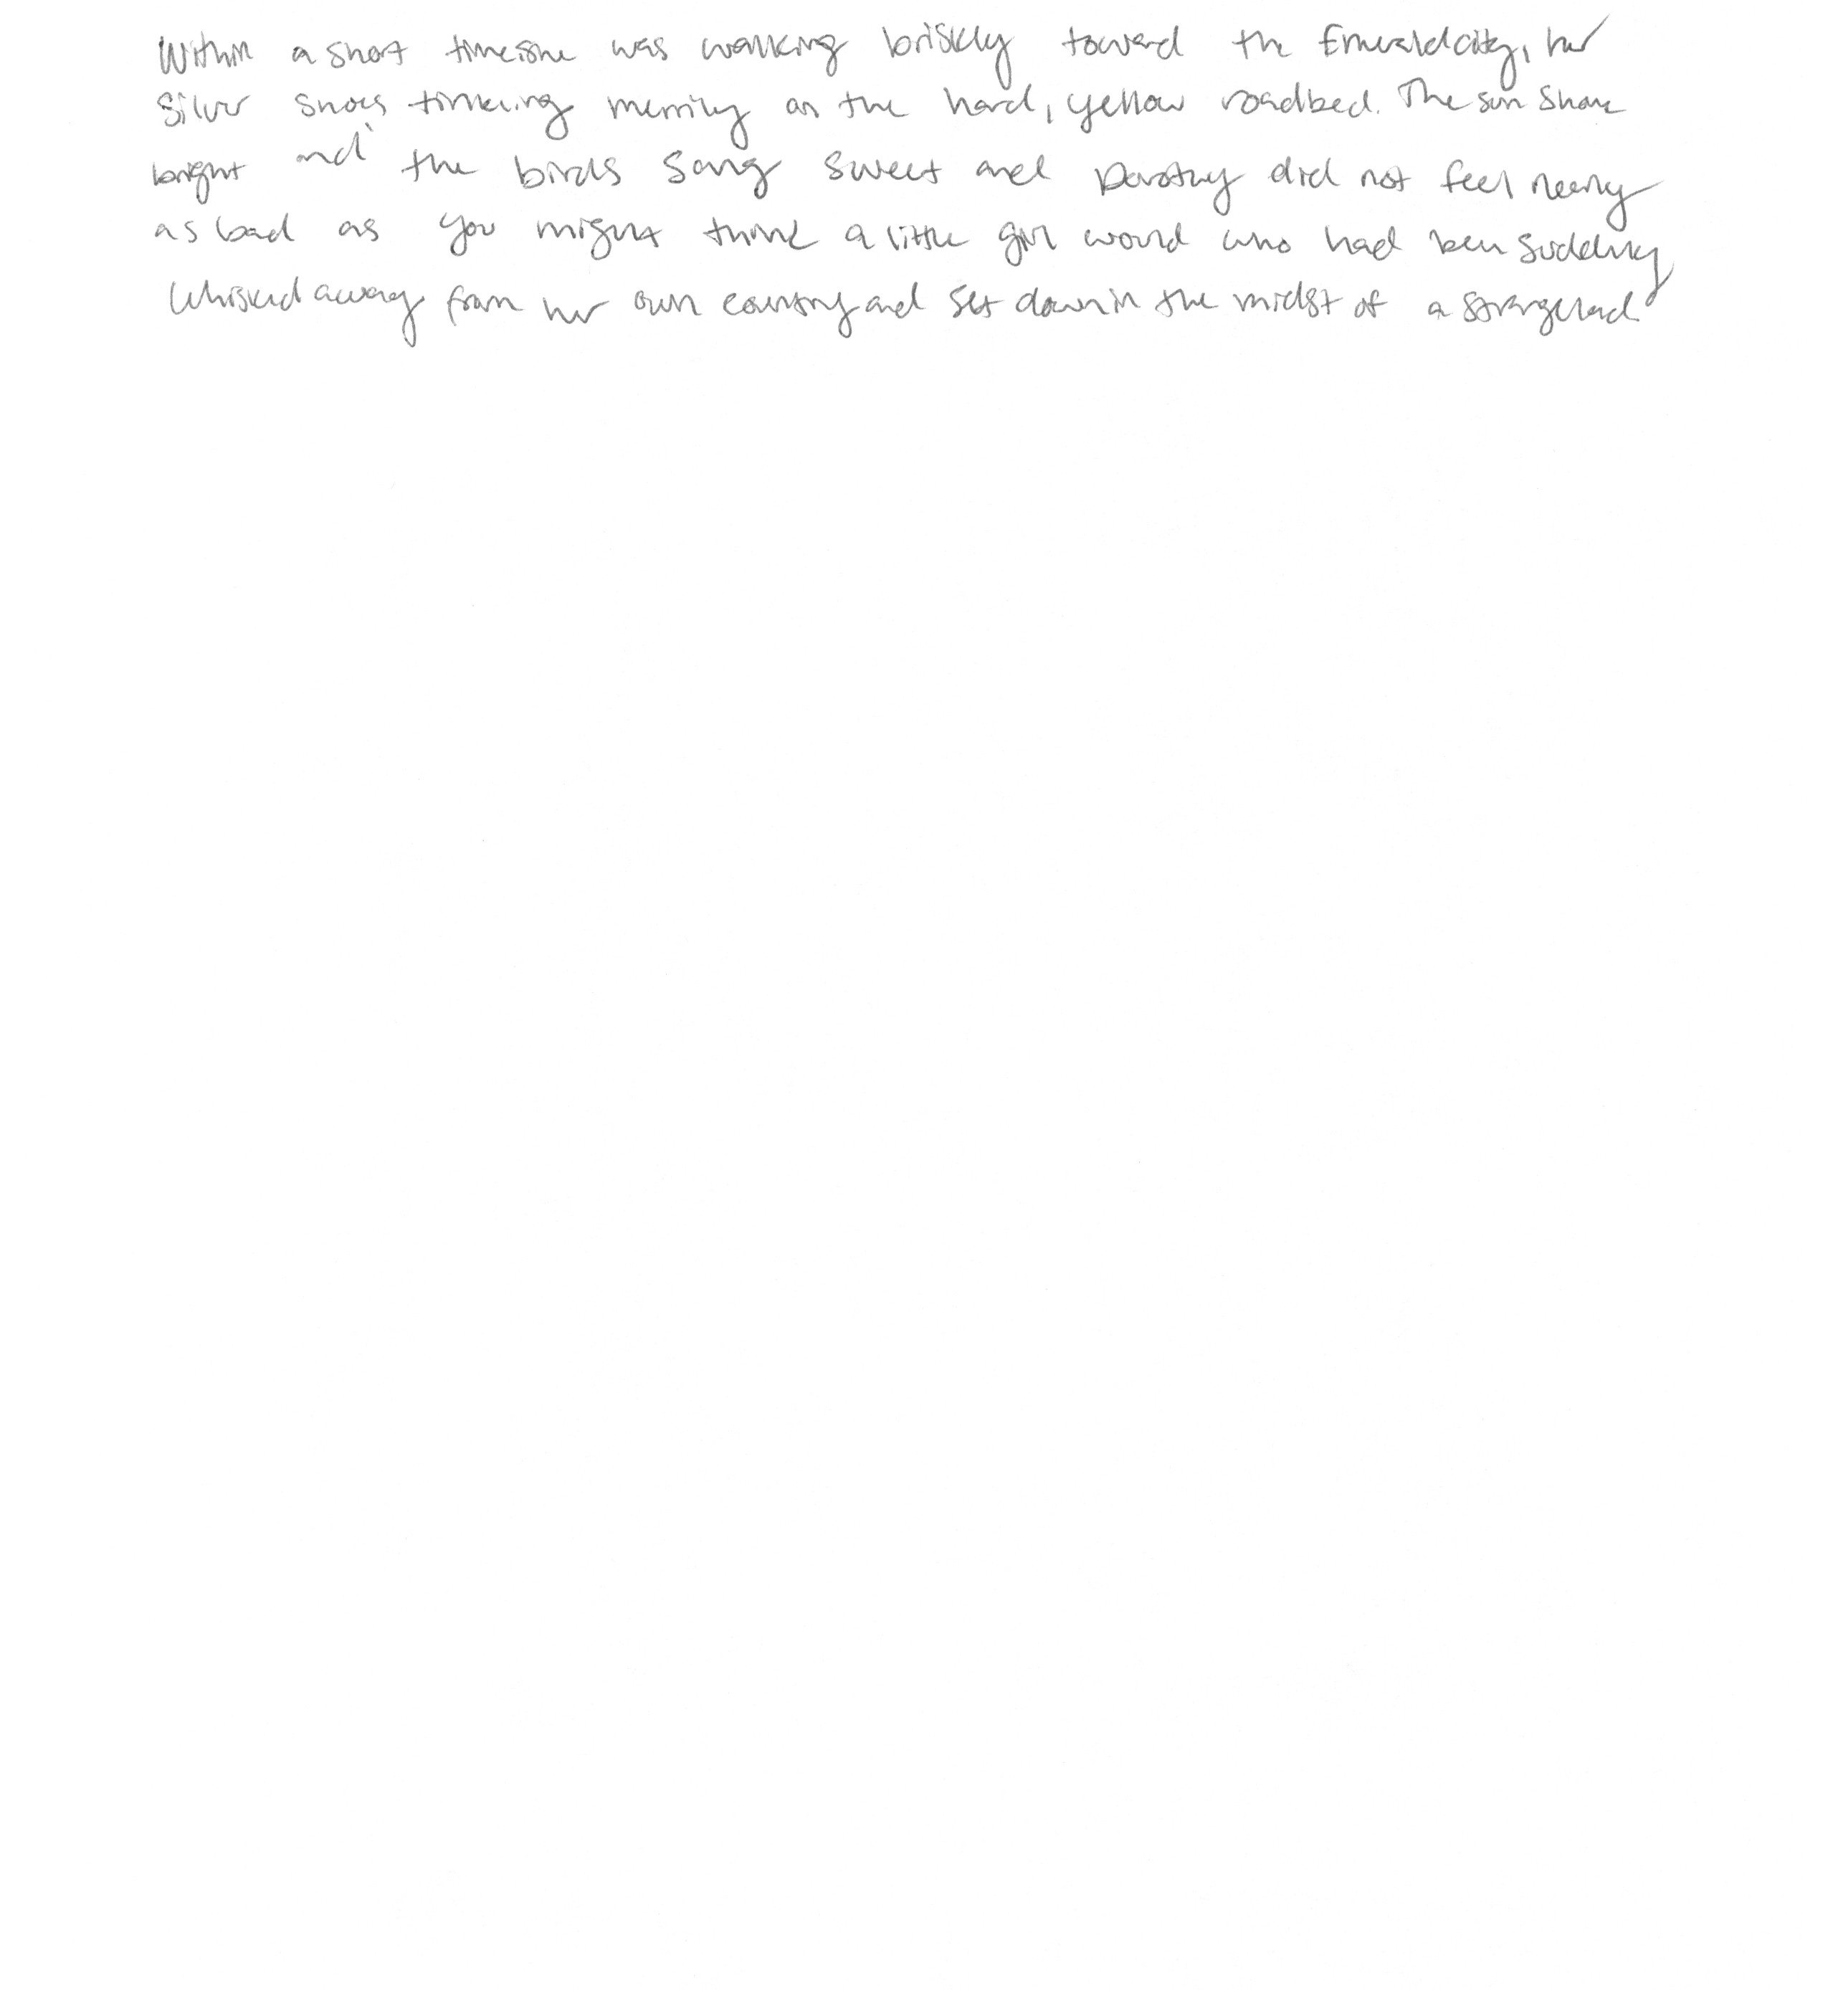 Within a short time she was walking briskly toward the Emerald City, her
Silver Shoes tinkling merrily on the hard, yellow roadbed. The sun shone
bright and the birds sang sweet and Dorothy did not feel nearly
as bad as you might think a little girl would who had been suddenly
whisked away from her own country and set down in the midst of a strange land